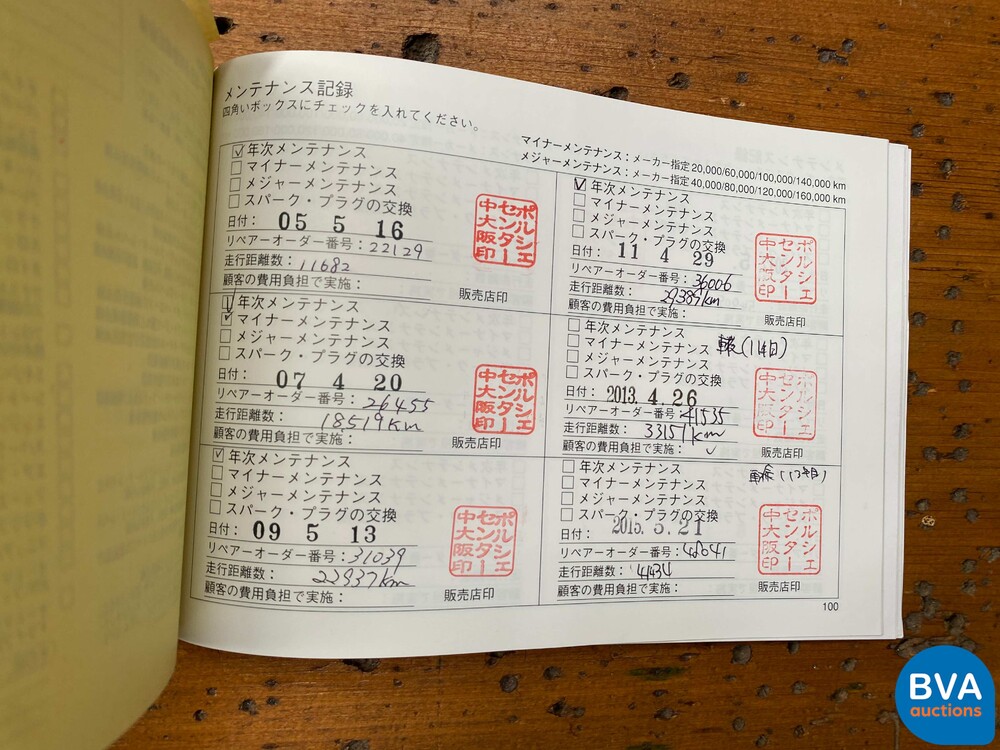 メンテナンス記録
四角いボックスにチェックを入れてください。
マイナーメンテナンス：メーカー指定 20,000/60,000/100,000/140,000 km
メジャーメンテナンス：メーカー指定 40,000/80,000/120,000/160,000 km
年次メンテナンス
マイナーメンテナンス
メジャーメンテナンス
スパーク・プラグの交換
日付： 05 5 16
リペアーオーダー番号：22129
走行距離数： 11682
顧客の費用負担で実施：
ポルシェ
センター
中大阪印
販売店印
年次メンテナンス
マイナーメンテナンス
メジャーメンテナンス
スパーク・プラグの交換
日付： 07 4 20
リペアーオーダー番号：26455
走行距離数： 18519km
顧客の費用負担で実施：
ポルシェ
センター
中大阪印
販売店印
年次メンテナンス
マイナーメンテナンス
メジャーメンテナンス
スパーク・プラグの交換
日付： 09 5 13
リペアーオーダー番号：31039
走行距離数： 22937km
顧客の費用負担で実施：
ポルシェ
センター
中大阪印
販売店印
年次メンテナンス
マイナーメンテナンス
メジャーメンテナンス
スパーク・プラグの交換
日付： 11 4 29
リペアーオーダー番号：36006
走行距離数： 29389km
顧客の費用負担で実施：
ポルシェ
センター
中大阪印
販売店印
年次メンテナンス
マイナーメンテナンス
メジャーメンテナンス
スパーク・プラグの交換
日付： 2013. 4. 26
リペアーオーダー番号：41535
走行距離数： 33151km
顧客の費用負担で実施：
ポルシェ
センター
中大阪印
販売店印
年次メンテナンス
マイナーメンテナンス
メジャーメンテナンス
スパーク・プラグの交換
日付： 2015. 5. 21
リペアーオーダー番号：48041
走行距離数：
顧客の費用負担で実施：
ポルシェ
センター
中大阪印
販売店印
100
BVA
auctions